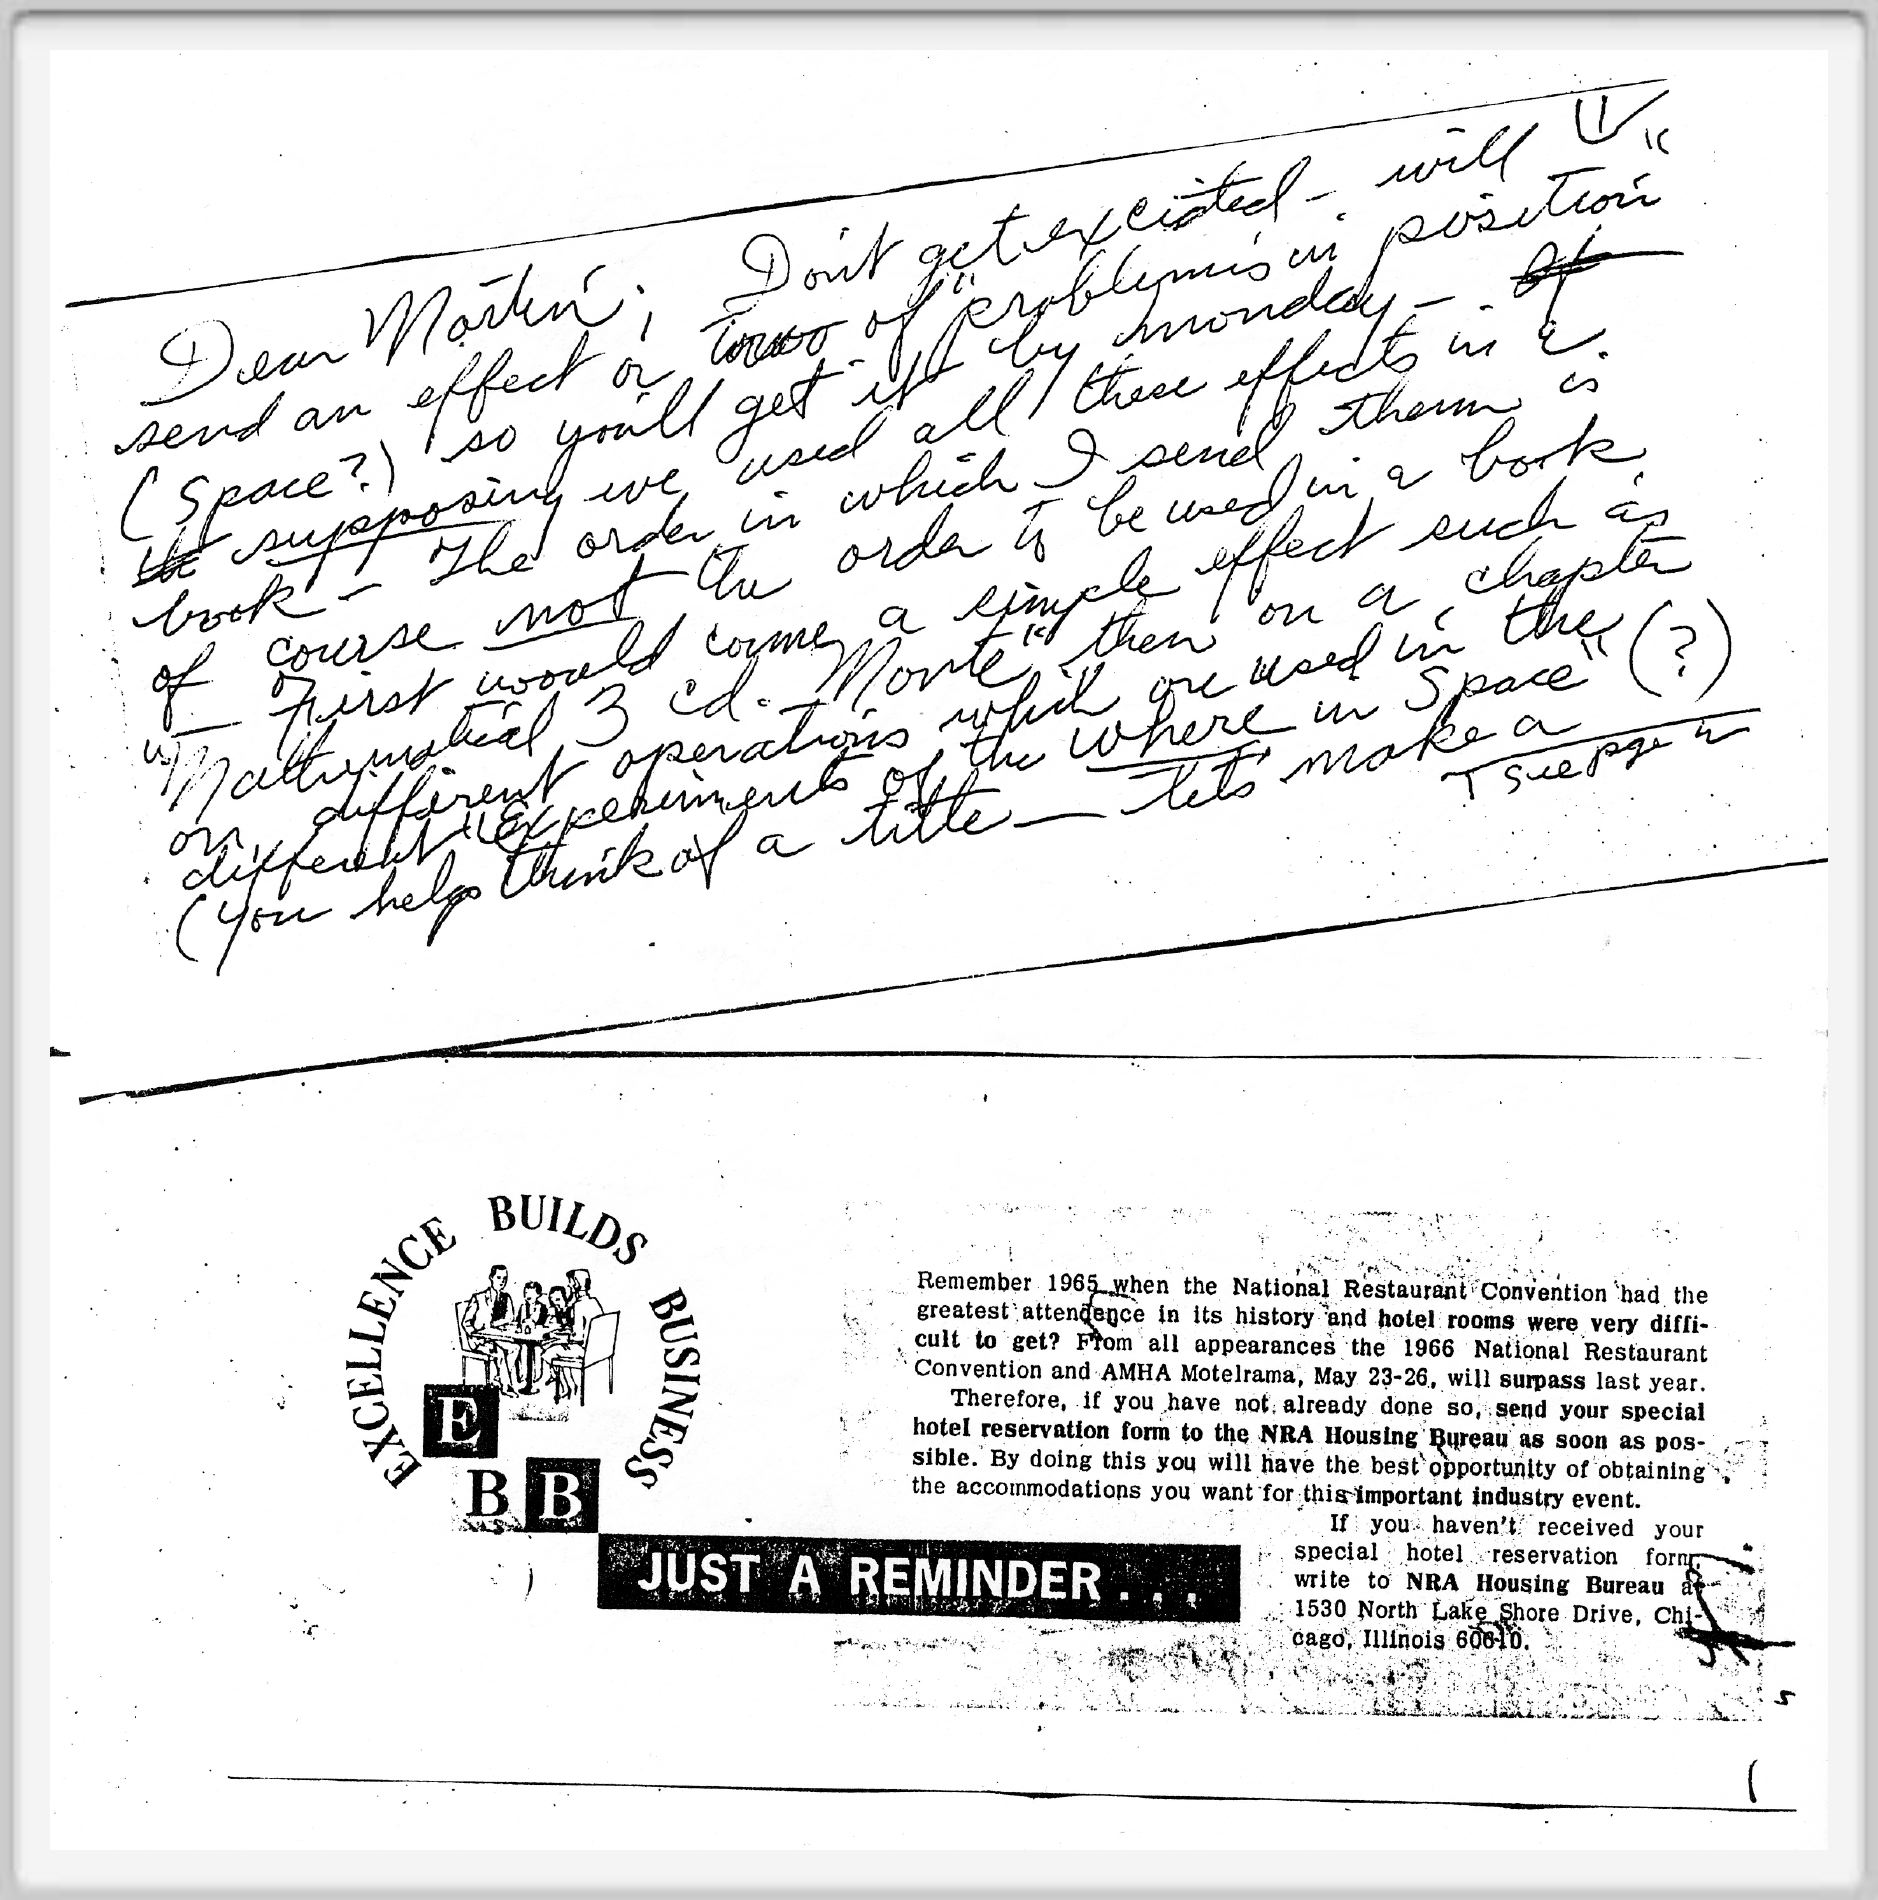 1
Dear Martin; Don't get excited – will
send an effect or two of "problems in position"
(Space?) so you'll get it by monday –
supposing we used all these effects in a
book – The order in which I send them is
of course not the order to be used in a book.
– First would come a simple effect such as
"Mathematical 3 cd. Monte" then on a chapter
on different operations which are used in the
different "Experiments of the where in Space" (?)
(you help think of a title — lets make a
see page
EXCELLENCE BUILDS BUSINESS
E
B B
JUST A REMINDER . . .
Remember 1965 when the National Restaurant Convention had the
greatest attendence in its history and hotel rooms were very diffi-
cult to get? From all appearances the 1966 National Restaurant
Convention and AMHA Motelrama, May 23-26, will surpass last year.
Therefore, if you have not already done so, send your special
hotel reservation form to the NRA Housing Bureau as soon as pos-
sible. By doing this you will have the best opportunity of obtaining
the accommodations you want for this important industry event.
If you haven't received your
special hotel reservation form,
write to NRA Housing Bureau at
1530 North Lake Shore Drive, Chi-
cago, Illinois 60610.